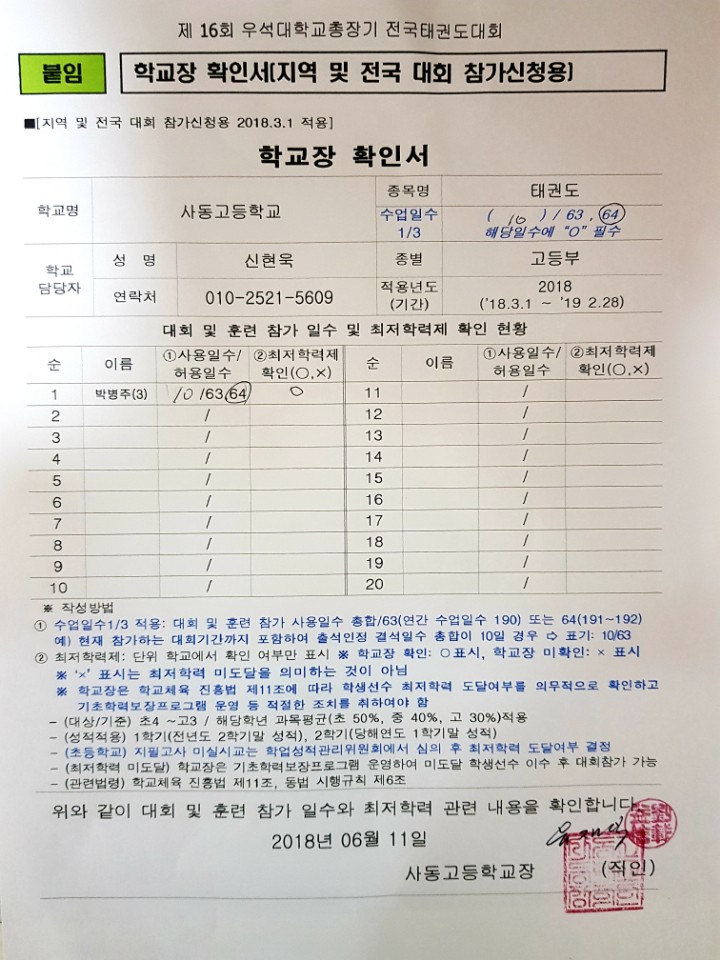 제 16회 우석대학교총장기 전국태권도대회
붙임 학교장 확인서(지역 및 전국 대회 참가신청용)
■[지역 및 전국 대회 참가신청용 2018.3.1 적용]
학교장 확인서
학교명 사동고등학교 종목명 태권도
수업일수 1/3 ( 10 ) / 63 , 64
해당일수에 "O" 필수
학교 담당자 성 명 신현욱 종별 고등부
연락처 010-2521-5609 적용년도 (기간) 2018
('18.3.1 ~ '19 2.28)
대회 및 훈련 참가 일수 및 최저학력제 확인 현황
순 이름 ①사용일수/허용일수 ②최저학력제 확인(○,×) 순 이름 ①사용일수/허용일수 ②최저학력제 확인(○,×)
1 박병주(3) 10 /63,64 ○ 11 /
2 / 12 /
3 / 13 /
4 / 14 /
5 / 15 /
6 / 16 /
7 / 17 /
8 / 18 /
9 / 19 /
10 / 20 /
※ 작성방법
① 수업일수1/3 적용: 대회 및 훈련 참가 사용일수 총합/63(연간 수업일수 190) 또는 64(191~192)
예) 현재 참가하는 대회기간까지 포함하여 출석인정 결석일수 총합이 10일 경우 ⇨ 표기: 10/63
② 최저학력제: 단위 학교에서 확인 여부만 표시 ※ 학교장 확인: ○표시, 학교장 미확인: × 표시
※ '×' 표시는 최저학력 미도달을 의미하는 것이 아님
※ 학교장은 학교체육 진흥법 제11조에 따라 학생선수 최저학력 도달여부를 의무적으로 확인하고
기초학력보장프로그램 운영 등 적절한 조치를 취하여야 함
- (대상/기준) 초4 ~고3 / 해당학년 과목평균(초 50%, 중 40%, 고 30%)적용
- (성적적용) 1학기(전년도 2학기말 성적), 2학기(당해연도 1학기말 성적)
- (초등학교) 지필고사 미실시교는 학업성적관리위원회에서 심의 후 최저학력 도달여부 결정
- (최저학력 미도달) 학교장은 기초학력보장프로그램 운영하여 미도달 학생선수 이수 후 대회참가 가능
- (관련법령) 학교체육 진흥법 제11조, 동법 시행규칙 제6조
위와 같이 대회 및 훈련 참가 일수와 최저학력 관련 내용을 확인합니다.
2018년 06월 11일
사동고등학교장 (직인)